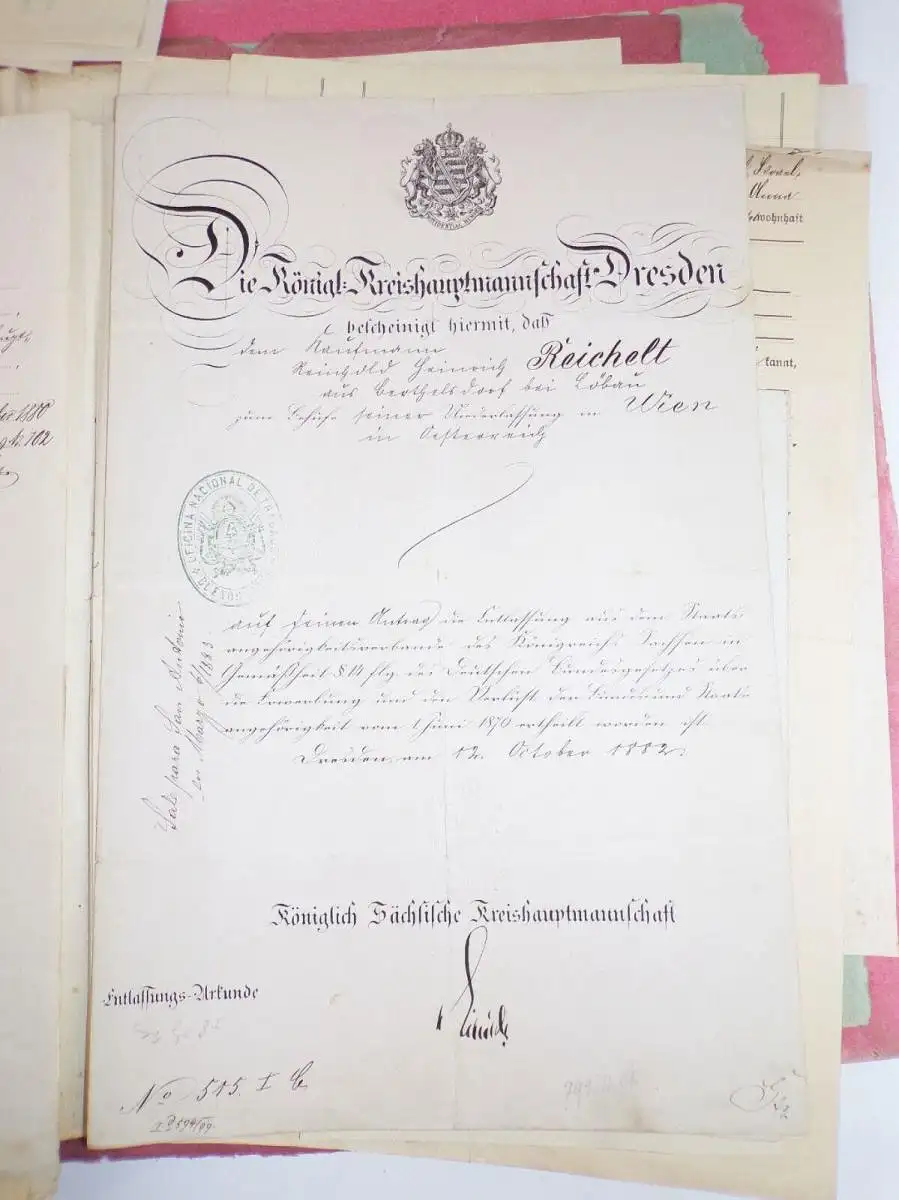 Die Königl: Kreishauptmannschaft Dresden
bescheinigt hiermit, daß
dem Kaufmann
Reinhold Heinrich Reichelt
aus Berthelsdorf bei Löbau
zum Behufe seiner Niederlassung in Wien
in Oesterreich
OFICINA NACIONAL DE TRABAJO
BUENOS
auf seinen Antrag die Entlassung aus dem Staats
angehörigkeitsverbande des Königreichs Sachsen in
Gemäßheit § 14 flg. des Deutschen Bundesgesetzes über
die Erwerbung und den Verlust der Bundes und Staats
angehörigkeit vom 1 Juni 1870 ertheilt worden ist.
Dresden, am 12. October 1882.
Sale para San Antonio
en Marzo 6/1883
Königlich Sächsische Kreishauptmannschaft
Entlassungs-Urkunde
No 515. I. C.
Israel
Anna
wohnhaft
kannt,
haupt-
1880
702